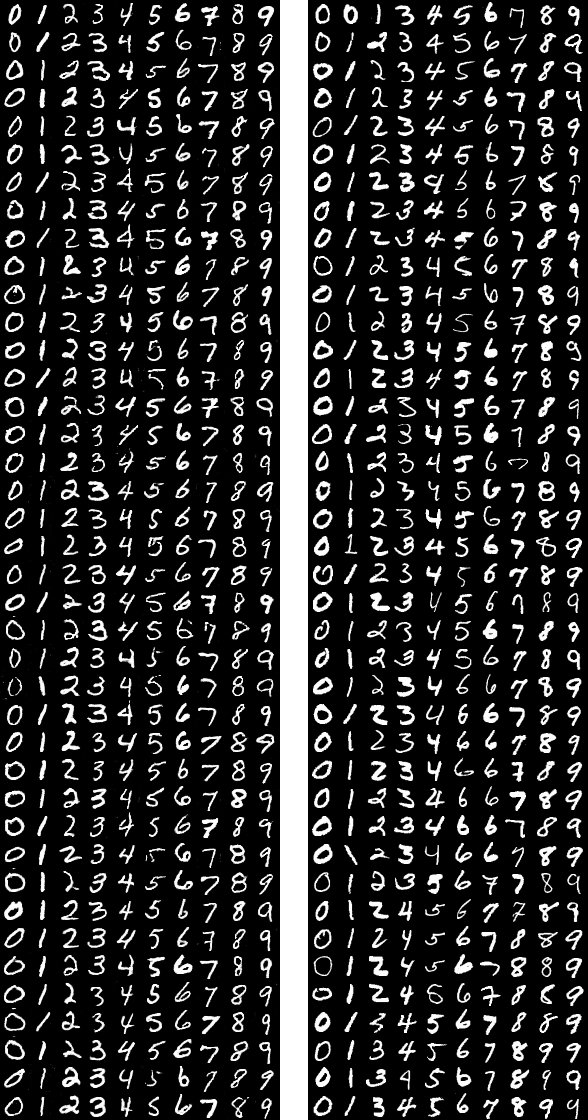 0 1 2 3 4 5 6 7 8 9
0 1 2 3 4 5 6 7 8 9
0 1 2 3 4 5 6 7 8 9
0 1 2 3 4 5 6 7 8 9
0 1 2 3 4 5 6 7 8 9
0 1 2 3 4 5 6 7 8 9
0 1 2 3 4 5 6 7 8 9
0 1 2 3 4 5 6 7 8 9
0 1 2 3 4 5 6 7 8 9
0 1 2 3 4 5 6 7 8 9
0 1 2 3 4 5 6 7 8 9
0 1 2 3 4 5 6 7 8 9
0 1 2 3 4 5 6 7 8 9
0 1 2 3 4 5 6 7 8 9
0 1 2 3 4 5 6 7 8 9
0 1 2 3 4 5 6 7 8 9
0 1 2 3 4 5 6 7 8 9
0 1 2 3 4 5 6 7 8 9
0 1 2 3 4 5 6 7 8 9
0 1 2 3 4 5 6 7 8 9
0 1 2 3 4 5 6 7 8 9
0 1 2 3 4 5 6 7 8 9
0 1 2 3 4 5 6 7 8 9
0 1 2 3 4 5 6 7 8 9
0 1 2 3 4 5 6 7 8 9
0 1 2 3 4 5 6 7 8 9
0 1 2 3 4 5 6 7 8 9
0 1 2 3 4 5 6 7 8 9
0 1 2 3 4 5 6 7 8 9
0 1 2 3 4 5 6 7 8 9
0 1 2 3 4 5 6 7 8 9
0 1 2 3 4 5 6 7 8 9
0 1 2 3 4 5 6 7 8 9
0 1 2 3 4 5 6 7 8 9
0 1 2 3 4 5 6 7 8 9
0 1 2 3 4 5 6 7 8 9
0 1 2 3 4 5 6 7 8 9
0 1 2 3 4 5 6 7 8 9
0 1 2 3 4 5 6 7 8 9
0 1 2 3 4 5 6 7 8 9
0 0 1 3 4 5 6 7 8 9
0 1 2 3 4 5 6 7 8 9
0 1 2 3 4 5 6 7 8 9
0 1 2 3 4 5 6 7 8 4
0 1 2 3 4 5 6 7 8 9
0 1 2 3 4 5 6 7 8 9
0 1 2 3 4 5 6 7 8 9
0 1 2 3 4 5 6 7 8 9
0 1 2 3 4 5 6 7 8 9
0 1 2 3 4 5 6 7 8 9
0 1 2 3 4 5 6 7 8 9
0 1 2 3 4 5 6 7 8 9
0 1 2 3 4 5 6 7 8 9
0 1 2 3 4 5 6 7 8 9
0 1 2 3 4 5 6 7 8 9
0 1 2 3 4 5 6 7 8 9
0 1 2 3 4 5 6 7 8 9
0 1 2 3 4 5 6 7 8 9
0 1 2 3 4 5 6 7 8 9
0 1 2 3 4 5 6 7 8 9
0 1 2 3 4 5 6 7 8 9
0 1 2 3 4 5 6 7 8 9
0 1 2 3 4 5 6 7 8 9
0 1 2 3 4 5 6 7 8 9
0 1 2 3 4 6 6 7 8 9
0 1 2 3 4 6 6 7 8 9
0 1 2 3 4 6 6 7 8 9
0 1 2 3 4 6 6 7 8 9
0 1 2 3 4 6 6 7 8 9
0 1 2 3 4 6 6 7 8 9
0 1 2 3 4 6 6 7 8 9
0 1 2 3 5 6 7 7 8 9
0 1 2 4 5 6 7 7 8 9
0 1 2 4 5 6 7 8 8 9
0 1 2 4 5 6 7 8 8 9
0 1 2 4 6 6 7 8 8 9
0 1 3 4 5 6 7 8 8 9
0 1 3 4 5 6 7 8 9 9
0 1 3 4 5 6 7 8 9 9
0 1 3 4 5 6 7 8 9 9